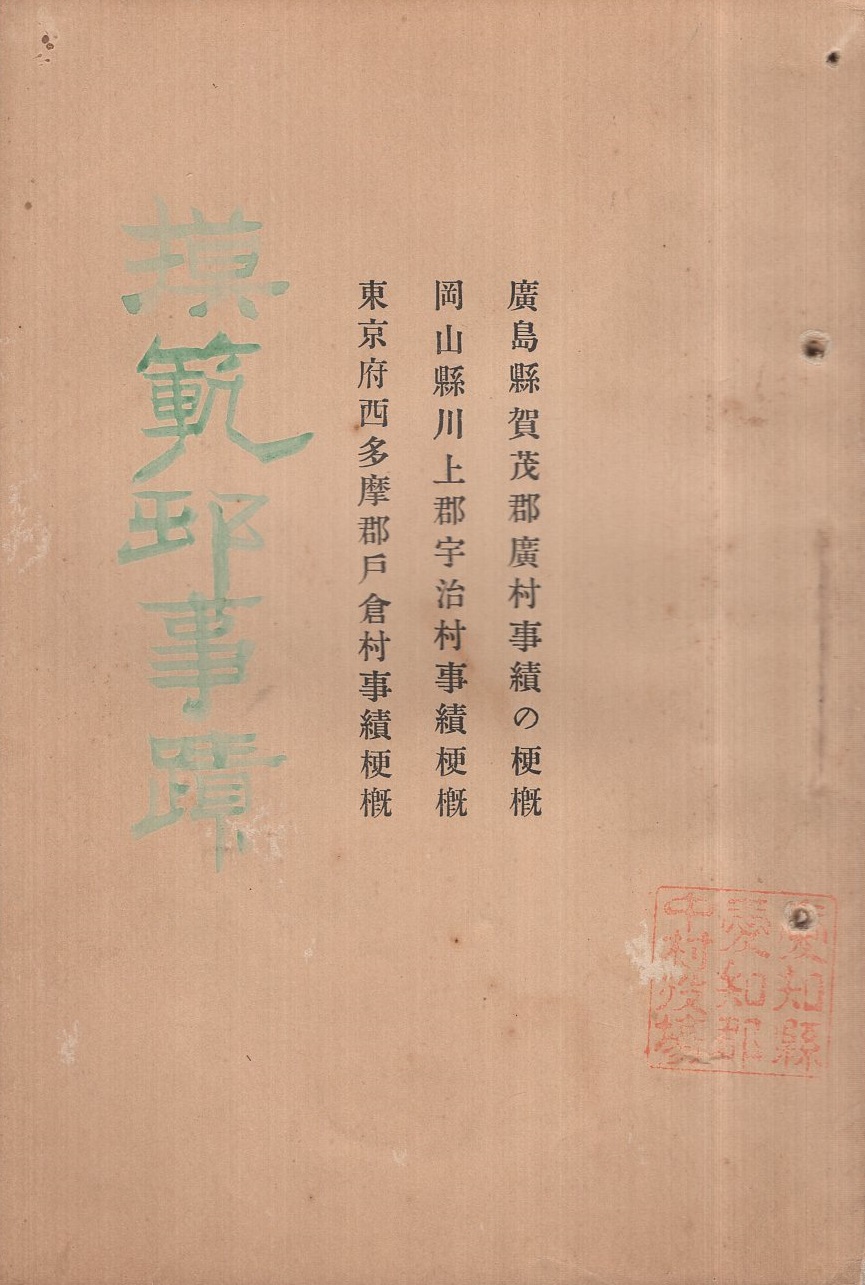 廣島縣賀茂郡廣村事績の梗概
岡山縣川上郡宇治村事績梗概
東京府西多摩郡戶倉村事績梗概
摸範邨事蹟
愛知縣
愛知郡
中村役塲